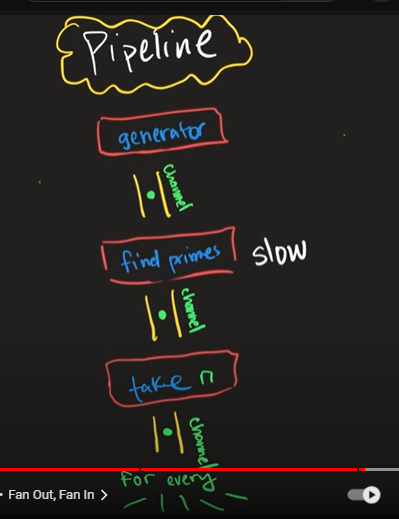 Pipeline
generator
channel
find primes slow
channel
take n
channel
For every
• Fan Out, Fan In >